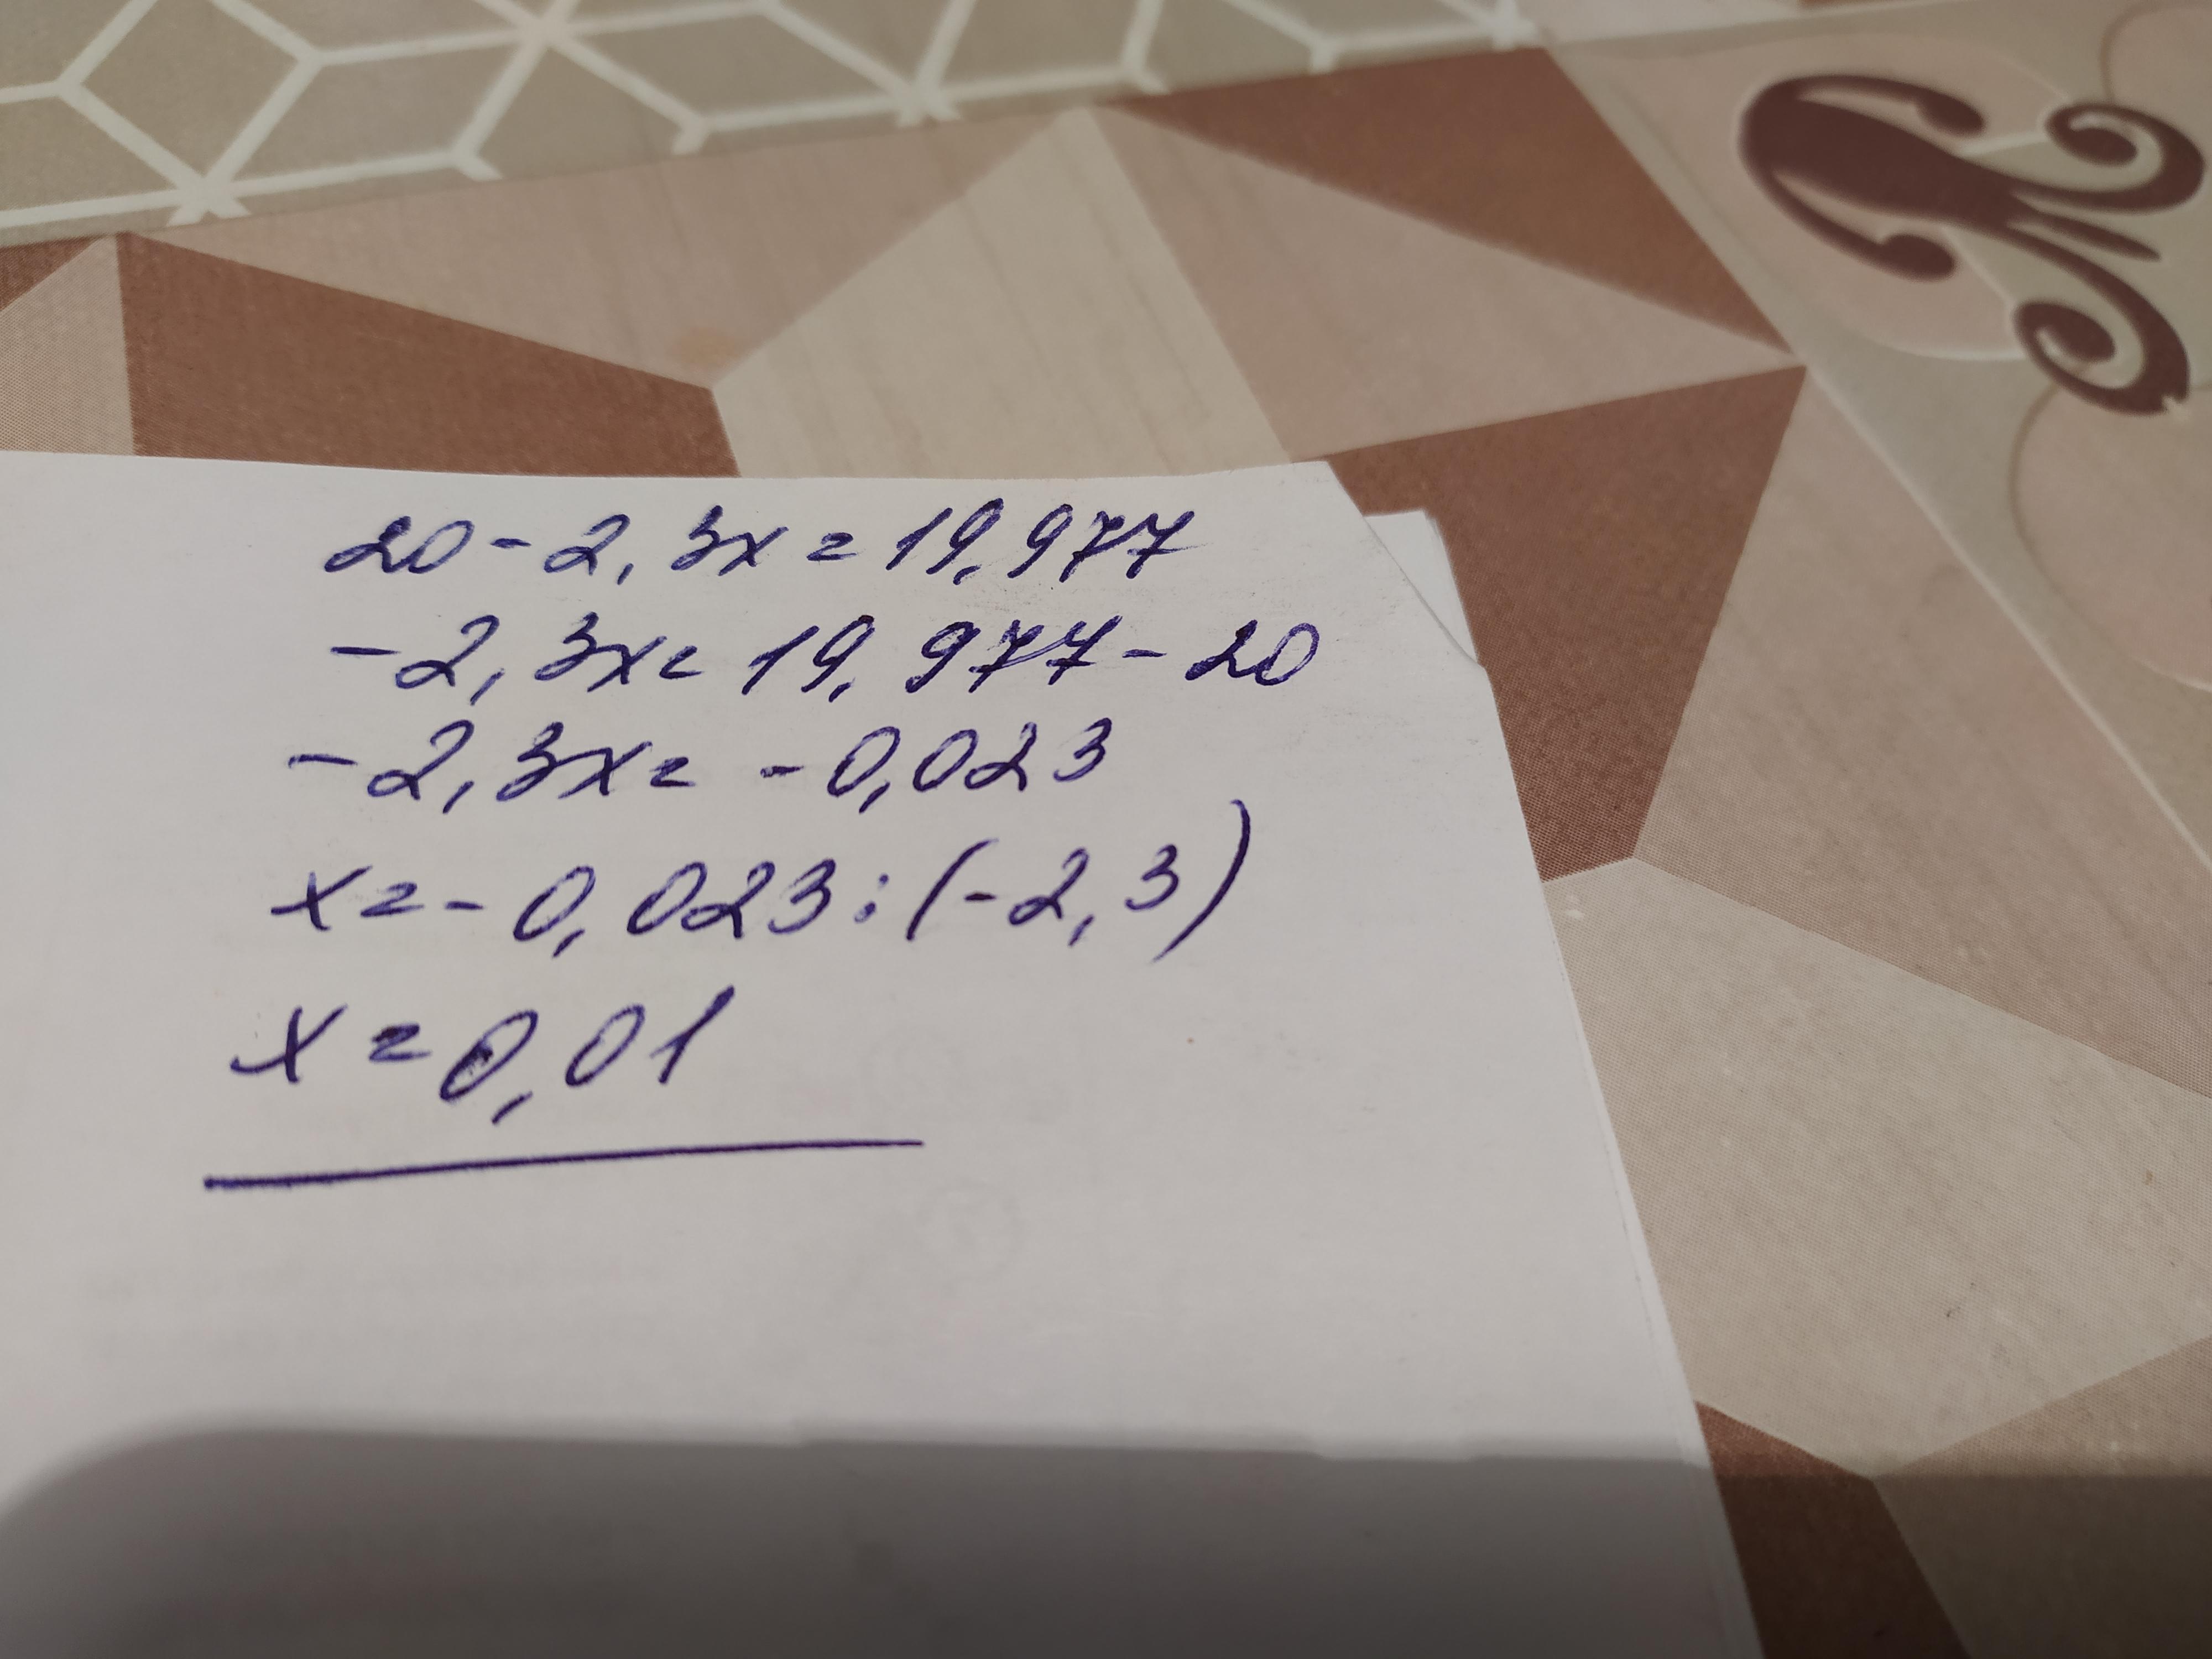 20-2,3x=19,977
-2,3x=19,977-20
-2,3x=-0,023
x=-0,023:(-2,3)
x=0,01